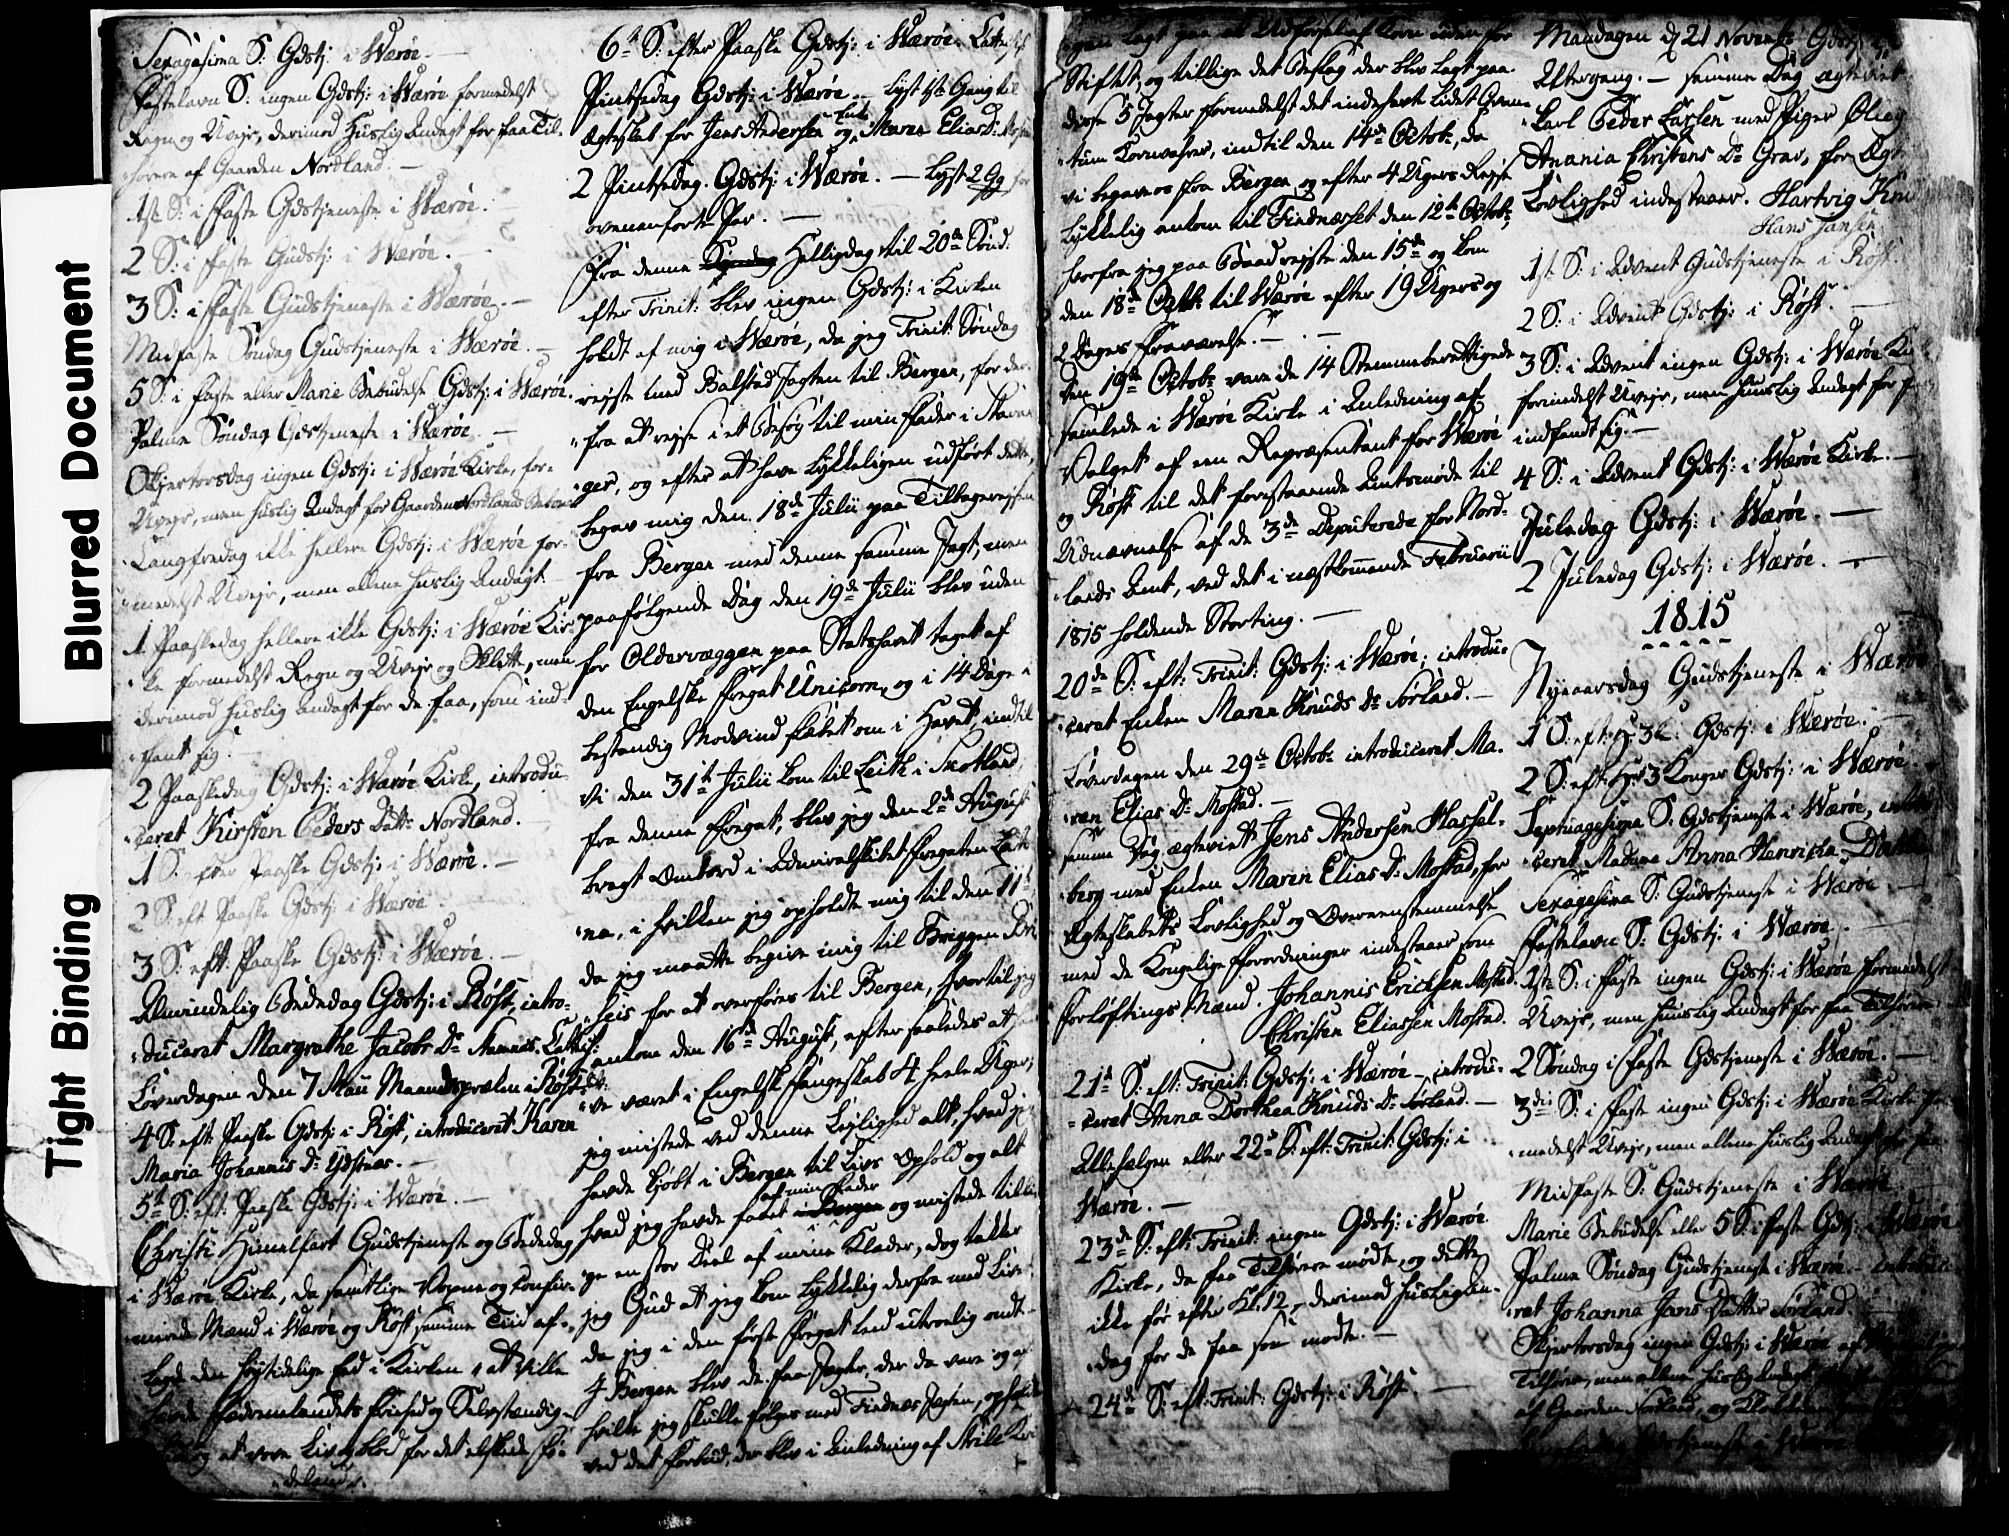 Blurred Document
Tight Binding
Sexagesima S: Gdstj: i Værøe. —
Fastelavn S: ingen Gdstj: i Værøe formedelst
Regn og Uvejr, derimod Huslig Andagt for faa Til-
hørere af Gaarden Nordland. —
1ste S: i Faste Gdstjeneste i Værøe. —
2 S: i Faste Gudstj: i Værøe. —
3 S: i Faste Gudstjeneste i Værøe. —
Midfaste Søndag Gudstjeneste i Værøe. —
5 S: i Faste eller Mariæ Bebudelse Gdstj: i Værøe.
Palme Søndag Gdstjeneste i Værøe. —
Skjertorsdag ingen Gdstj: i Værøe Kirke, for-
Uvejr, men huslig Andagt for Gaarden Nordlands
Langfredag ikke hellere Gdstj: i Værøe for-
medelst Uvejr, men allene huslig Andagt. —
1 Paaskedag hellere ikke Gdstj: i Værøe Kir-
ke formedelst Regn og Uvejr og Slette, men
derimod huslig Andagt for de faa, som ind-
fant sig. —
2 Paaskedag Gdstj: i Værøe Kirke, introdu-
ceret Kirsten Peders Datt: Nordland.
1 S: efter Paaske Gdstj: i Værøe. —
2 S: eft. Paaske Gdstj: i Værøe. —
3 S: eft. Paaske Gdstj: i Værøe. —
Almindelig Bededag Gdstj: i Røst, intro-
duceret Margrethe Jacobs Dr.
Løverdagen den 7 Maii i Røst
4 S: eft. Paaske Gdstj: i Røst, introduceret Karen
Maria Johannis Dr Ystnes. —
5te S: eft. Paaske Gdstj: i Værøe. —
Christi Himmelfart Gudstjeneste og Bededag
i Værøe Kirke, da samtlige Voxne og confir-
merede Mænd i Værøe og Røst samme Tiid af-
lagde den høytidelige Eed i Kirken, at ville
hævde Fædrenelandets Friehed og Selvstændig-
og at vove Liv og Blod for det elskede Fæ-
dreland.
6te S: efter Paaske Gdstj: i Værøe.
Pintsedag Gdstj: i Værøe. — Lyst 1ste Gang til
Ægteskab for Jens Andersen og Enke Maren Elias Dr
2 Pintsedag. Gdstj: i Værøe. — Lyst 2 Gg for
ovenanførte Par. —
Fra denne Helligdag til 20de Sønd:
efter Trinit: blev ingen Gdstj: i Kirken
holdt af mig i Værøe, da jeg Trinit: Søndag
rejste med Balstad Jagten til Bergen, for der-
fra at rejse i et Besøg til min Fader i Stavan-
ger, og efter at have lykkeligen udført dette,
begav mig den 18de Julii paa Tilbagerejsen
fra Bergen med denne samme Jagt, men
paafølgende Dag den 19de Julii blev uden
for Oldervæggen paa Stathavet taget af
den Engelske Fregat Unicorn, og i 14 Dage
bestandig Modvind flakket om i Havet, indtil
vi den 31te Julii kom til Leith i Skotland,
fra denne Fregat, blev jeg den 2de August
bragt Ombord i Admiralskibet Fregaten
na, i hvilken jeg opholdte mig til den 11te
da jeg maatte begive mig til Briggen
for at overføres til Bergen, hvortil jeg
ankom den 16de August, efter saaledes at ha-
ve været i Engelsk Fangeskab 4 heele Uger,
jeg mistede ved denne Lejlighed alt, hvad jeg
havde kjøbt i Bergen til Livs Ophold og alt
hvad jeg havde faaet af min Fader i Bergen og mistede tilli-
ge en stor Deel af mine Klæder, dog takker
jeg Gud at jeg kom lykkelig derfra med Livet
da jeg i den første Fregat leed utroelig ondt.
I Bergen blev de faa Jagter, der da vare og af
hvilke jeg skulle følges med Findnæs Jagten, opholdt
ved det Forbud, der blev i Anledning af
lagt paa al Udførsel af Korn uden for
Stiftet, og tillige det Beslag der blev lagt paa
disse 5 Jagter formedelst det indehavte lidet
tum Kornvahre, indtil den 14de Octobr, da
vi begave os fra Bergen og efter 4 Ugers Rejse
lykkelig ankom til Findnæsset den 12te Octobr,
hvorfra jeg paa Baad rejste den 15de og kom
den 18de Octbr til Værøe efter 19 Ugers og
2 Dages Fraværelse. —
Den 19de Octobr vare de 14 Stemmeberettigede
samlede i Værøe Kirke i Anledning af
Valget af een Repræsentant for Værøe
og Røst til det forestaaende Amtsmøde til
Udnævnelse af de 3de Deputerede for Nord-
lands Amt, ved det i næstkommende Februarii
1815 holdende Storting. —
20de S: eft: Trinit: Gdstj: i Værøe, introdu-
ceret Enken Maren Knuds Dr Sørland. —
Løverdagen den 29de Octobr introduceret Ma-
ren Elias Dr Mostad. —
samme Dag ægteviet Jens Andersen Hassel-
berg med Enken Maren Elias Dr Mostad, for
Ægteskabets Lovlighed og Overeenstemmelse
med de Kongelige Forordninger indestaaer som
Forløftings Mænd. Johannis Erichsen Mostad.
Christen Eliassen Mostad.
21de S: eft: Trinit: Gdstj: i Værøe — introdu-
ceret Anna Dorthea Knuds Dr Sørland. —
Allehelgen eller 22de S: eft: Trinit: Gdstj: i
Værøe. —
23de S: eft: Trinit: ingen Gdstj: i Værøe
Kirke, da faa Tilhørere mødte, og dette
ikke før efter Kl: 12, derimod huslig An-
dag for de faa som mødte. —
24de S: eft: Trinit: Gdstj: i Røst. —
Mandagen d 21 Novembr Gdstj:
Altergang. — samme Dag ægteviet
Karl Peder Larsen med Piger Oleg
Anania Christens Dr Grav, for Ægt.
Lovlighed indestaaer. Hartvig
Hans Jansen
1ste S: i Advent Gudstjeneste i Røst.
2 S: i Advent Gdstj: i Røst. —
3 S: i Advent ingen Gdstj: i Værøe
formedelst Uvejr, men Huuslig Andagt for
indfandt sig. —
4 S: i Advent Gdstj: i Værøe Kirke. —
Juledag Gdstj: i Værøe. —
2 Juledag Gdstj: i Værøe. —
1815
Nytaarsdag Gudstjeneste i Værøe
1 S: eft: H: 3 K: Gdstj: i Værøe. —
2 S: eft: H: 3 Konger Gdstj: i Værøe.
Septuagesima S: Gdstjeneste i Værøe,
ceret Madame Anna Henricha
Sexagesima S: Gudstjeneste i Værøe. —
Fastelavn S: Gdstj: i Værøe.
1ste S: i Faste ingen Gdstj: i Værøe formedelst
Uvejr, men huuslig Andagt for faa Tilhørere
2 Søndag i Faste Gdstjeneste i Værøe. —
3die S: i Faste ingen Gdstj: i Værøe Kirke for-
medelst Uvejr, men allene huslig Andagt for faa
Midfaste S: Gudstjeneste i Værøe
Mariæ Bebudelse eller 5 S: i Faste Gdstj: i Værøe
Palme Søndag Gudstjeneste i Værøe. — introdu-
ret Johanna Jans Datter Sørland. —
Skjertorsdag ingen Gdstj: i Værøe af
Tilhører, men allene huslig Andagt
af Gaarden Sørland, og
Gudstjeneste i Værøe